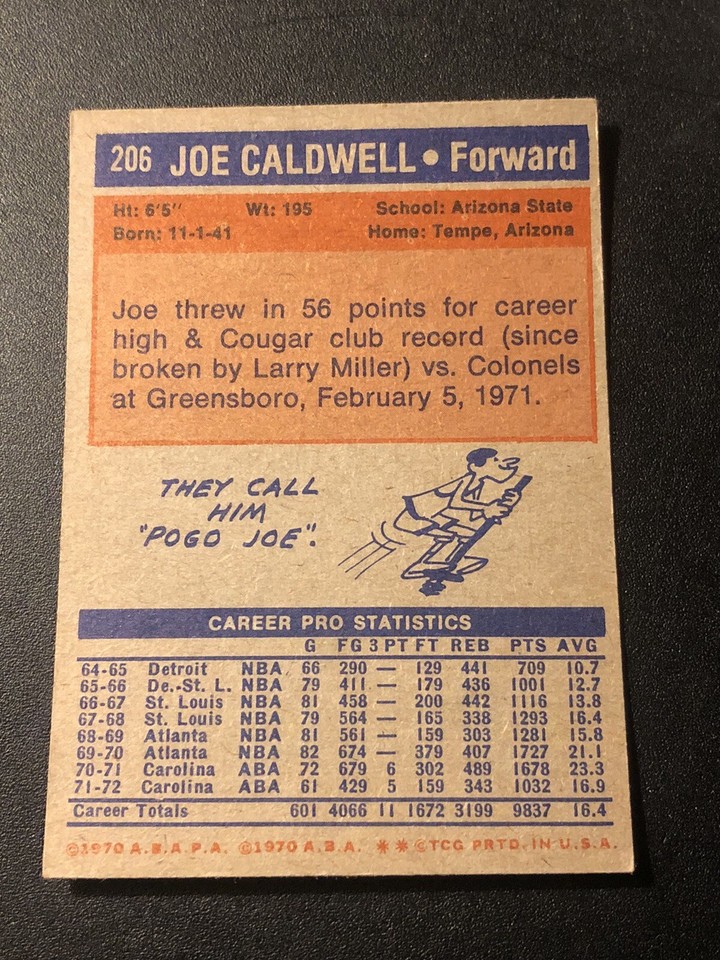 206 JOE CALDWELL • Forward
Ht: 6'5" Wt: 195 School: Arizona State
Born: 11-1-41 Home: Tempe, Arizona
Joe threw in 56 points for career
high & Cougar club record (since
broken by Larry Miller) vs. Colonels
at Greensboro, February 5, 1971.
THEY CALL
HIM
"POGO JOE".
CAREER PRO STATISTICS
G FG 3 PT FT REB PTS AVG
64-65 Detroit NBA 66 290 — 129 441 709 10.7
65-66 De.-St. L. NBA 79 411 — 179 436 1001 12.7
66-67 St. Louis NBA 81 458 — 200 442 1116 13.8
67-68 St. Louis NBA 79 564 — 165 338 1293 16.4
68-69 Atlanta NBA 81 561 — 159 303 1281 15.8
69-70 Atlanta NBA 82 674 — 379 407 1727 21.1
70-71 Carolina ABA 72 679 6 302 489 1678 23.3
71-72 Carolina ABA 61 429 5 159 343 1032 16.9
Career Totals 601 4066 11 1672 3199 9837 16.4
©1970 A.B.A.P.A. ©1970 A.B.A. ** ©TCG PRTD. IN U.S.A.